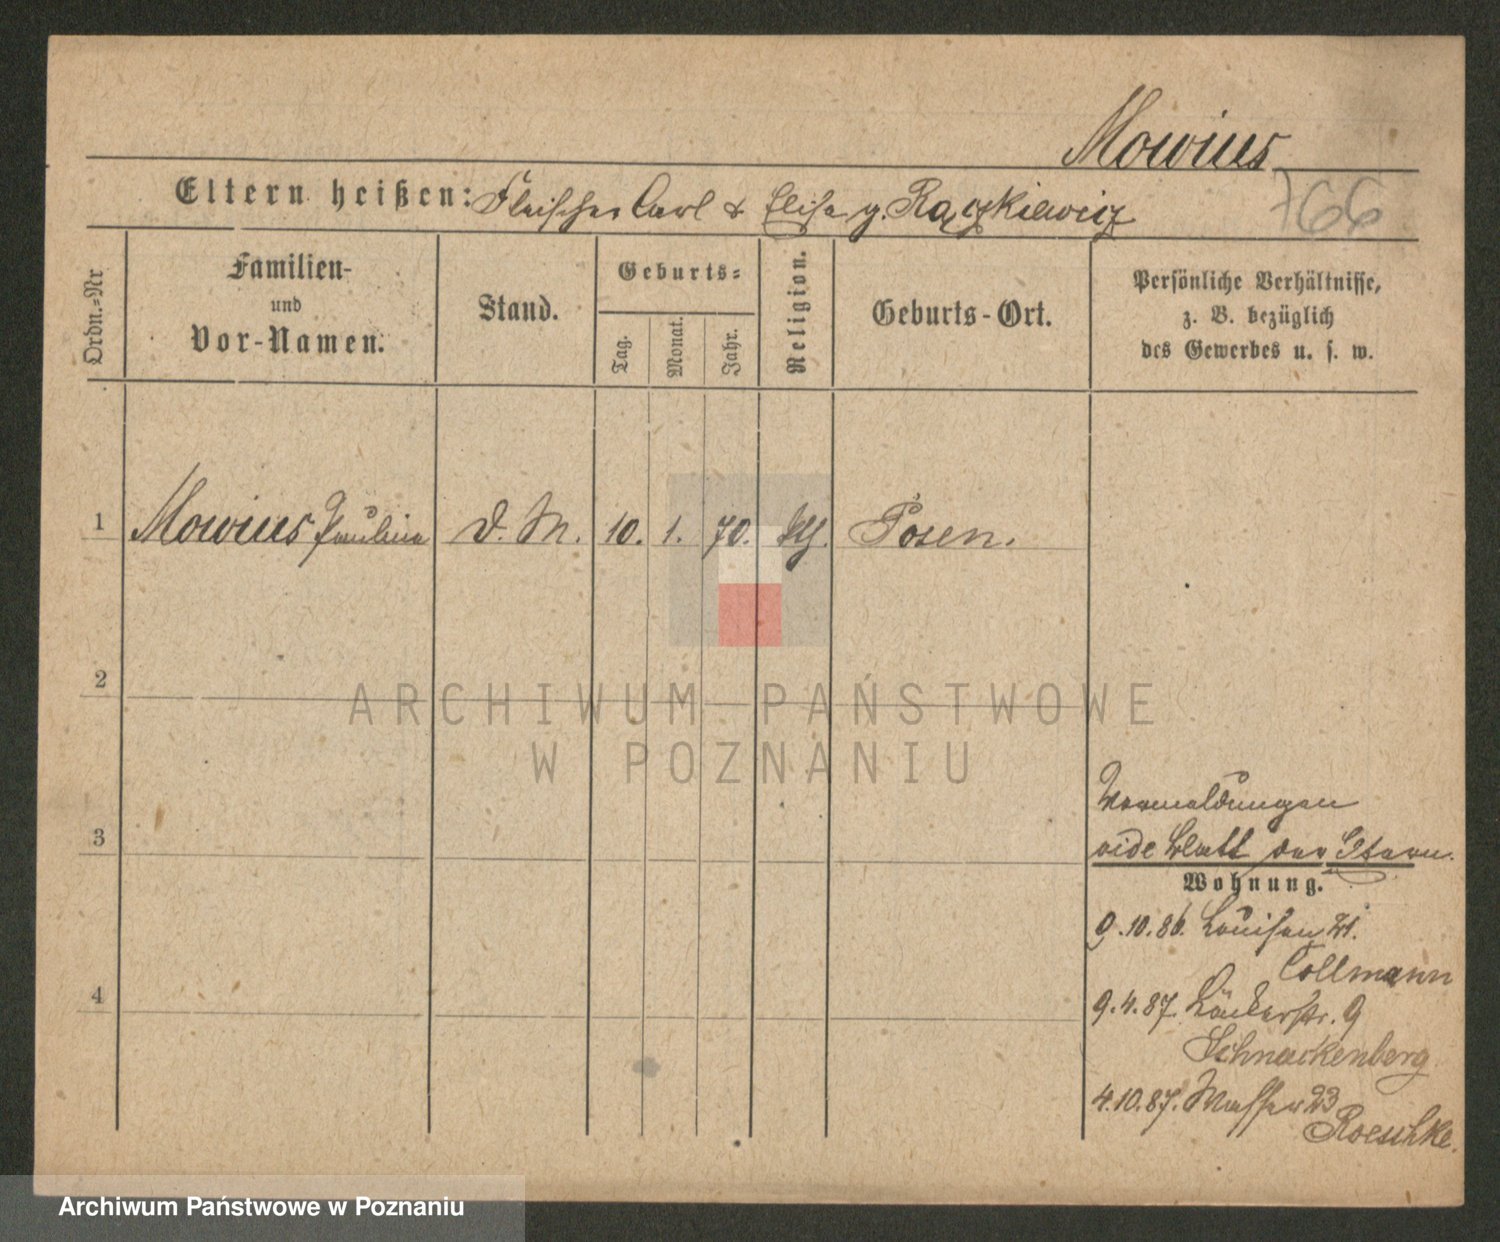 Mowius
Eltern heißen: Fleischer Carl & Elise g. Rączkiewicz
766
Ordn.-Nr
Familien-
und
Vor-Namen.
Stand.
Geburts-
Tag.
Monat.
Jahr.
Religion.
Geburts-Ort.
Persönliche Verhältnisse,
z. B. bezüglich
des Gewerbes u. s. w.
1 Mowius Paulina D. M. 10. 1. 70. Posen.
2
3
4
Vormeldungen
vide Blatt der Eltern.
Wohnung.
9.10.86. Louisen 21.
Collmann
9.4.87. Bäckerstr. 9
Schnackenberg
4.10.87. Wasser 23
Roeschke.
ARCHIWUM PAŃSTWOWE
W POZNANIU
Archiwum Państwowe w Poznaniu